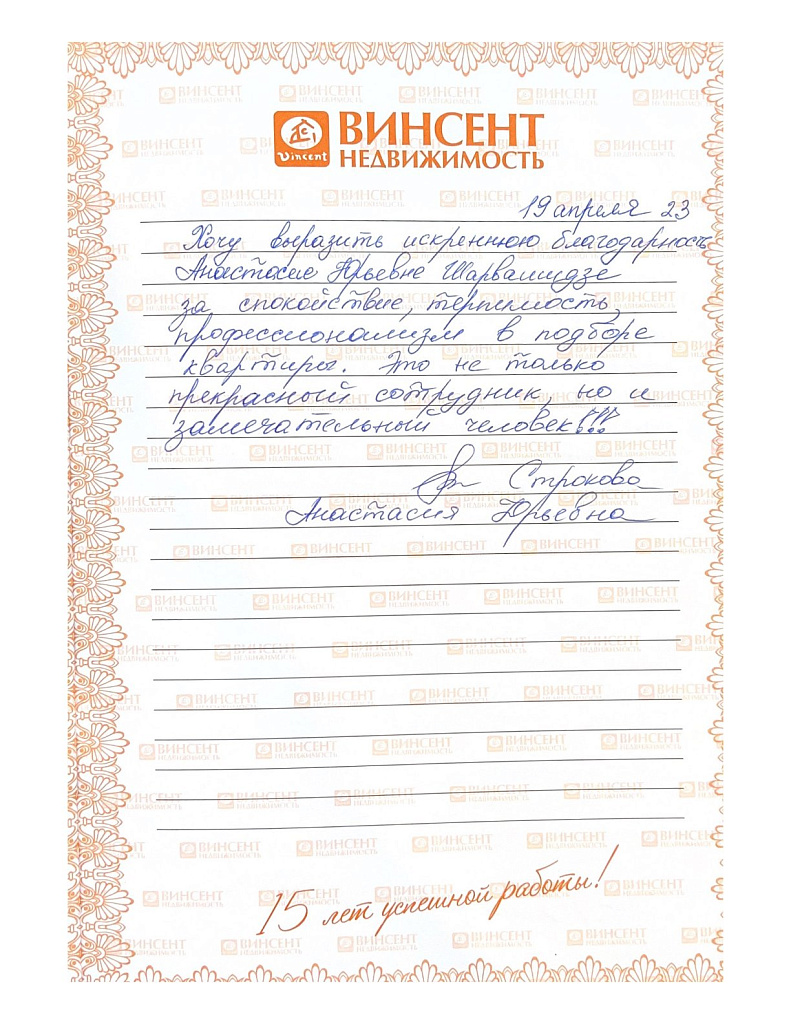 Vincent
ВИНСЕНТ
НЕДВИЖИМОСТЬ
19 апреля 23
Хочу выразить искреннюю благодарность
Анастасие Юрьевне Шарвашидзе
за спокойствие, терпимость,
профессионализм в подборе
квартиры. Это не только
прекрасный сотрудник, но и
замечательный человек!!!
Строкова
Анастасия Юрьевна
15 лет успешной работы!